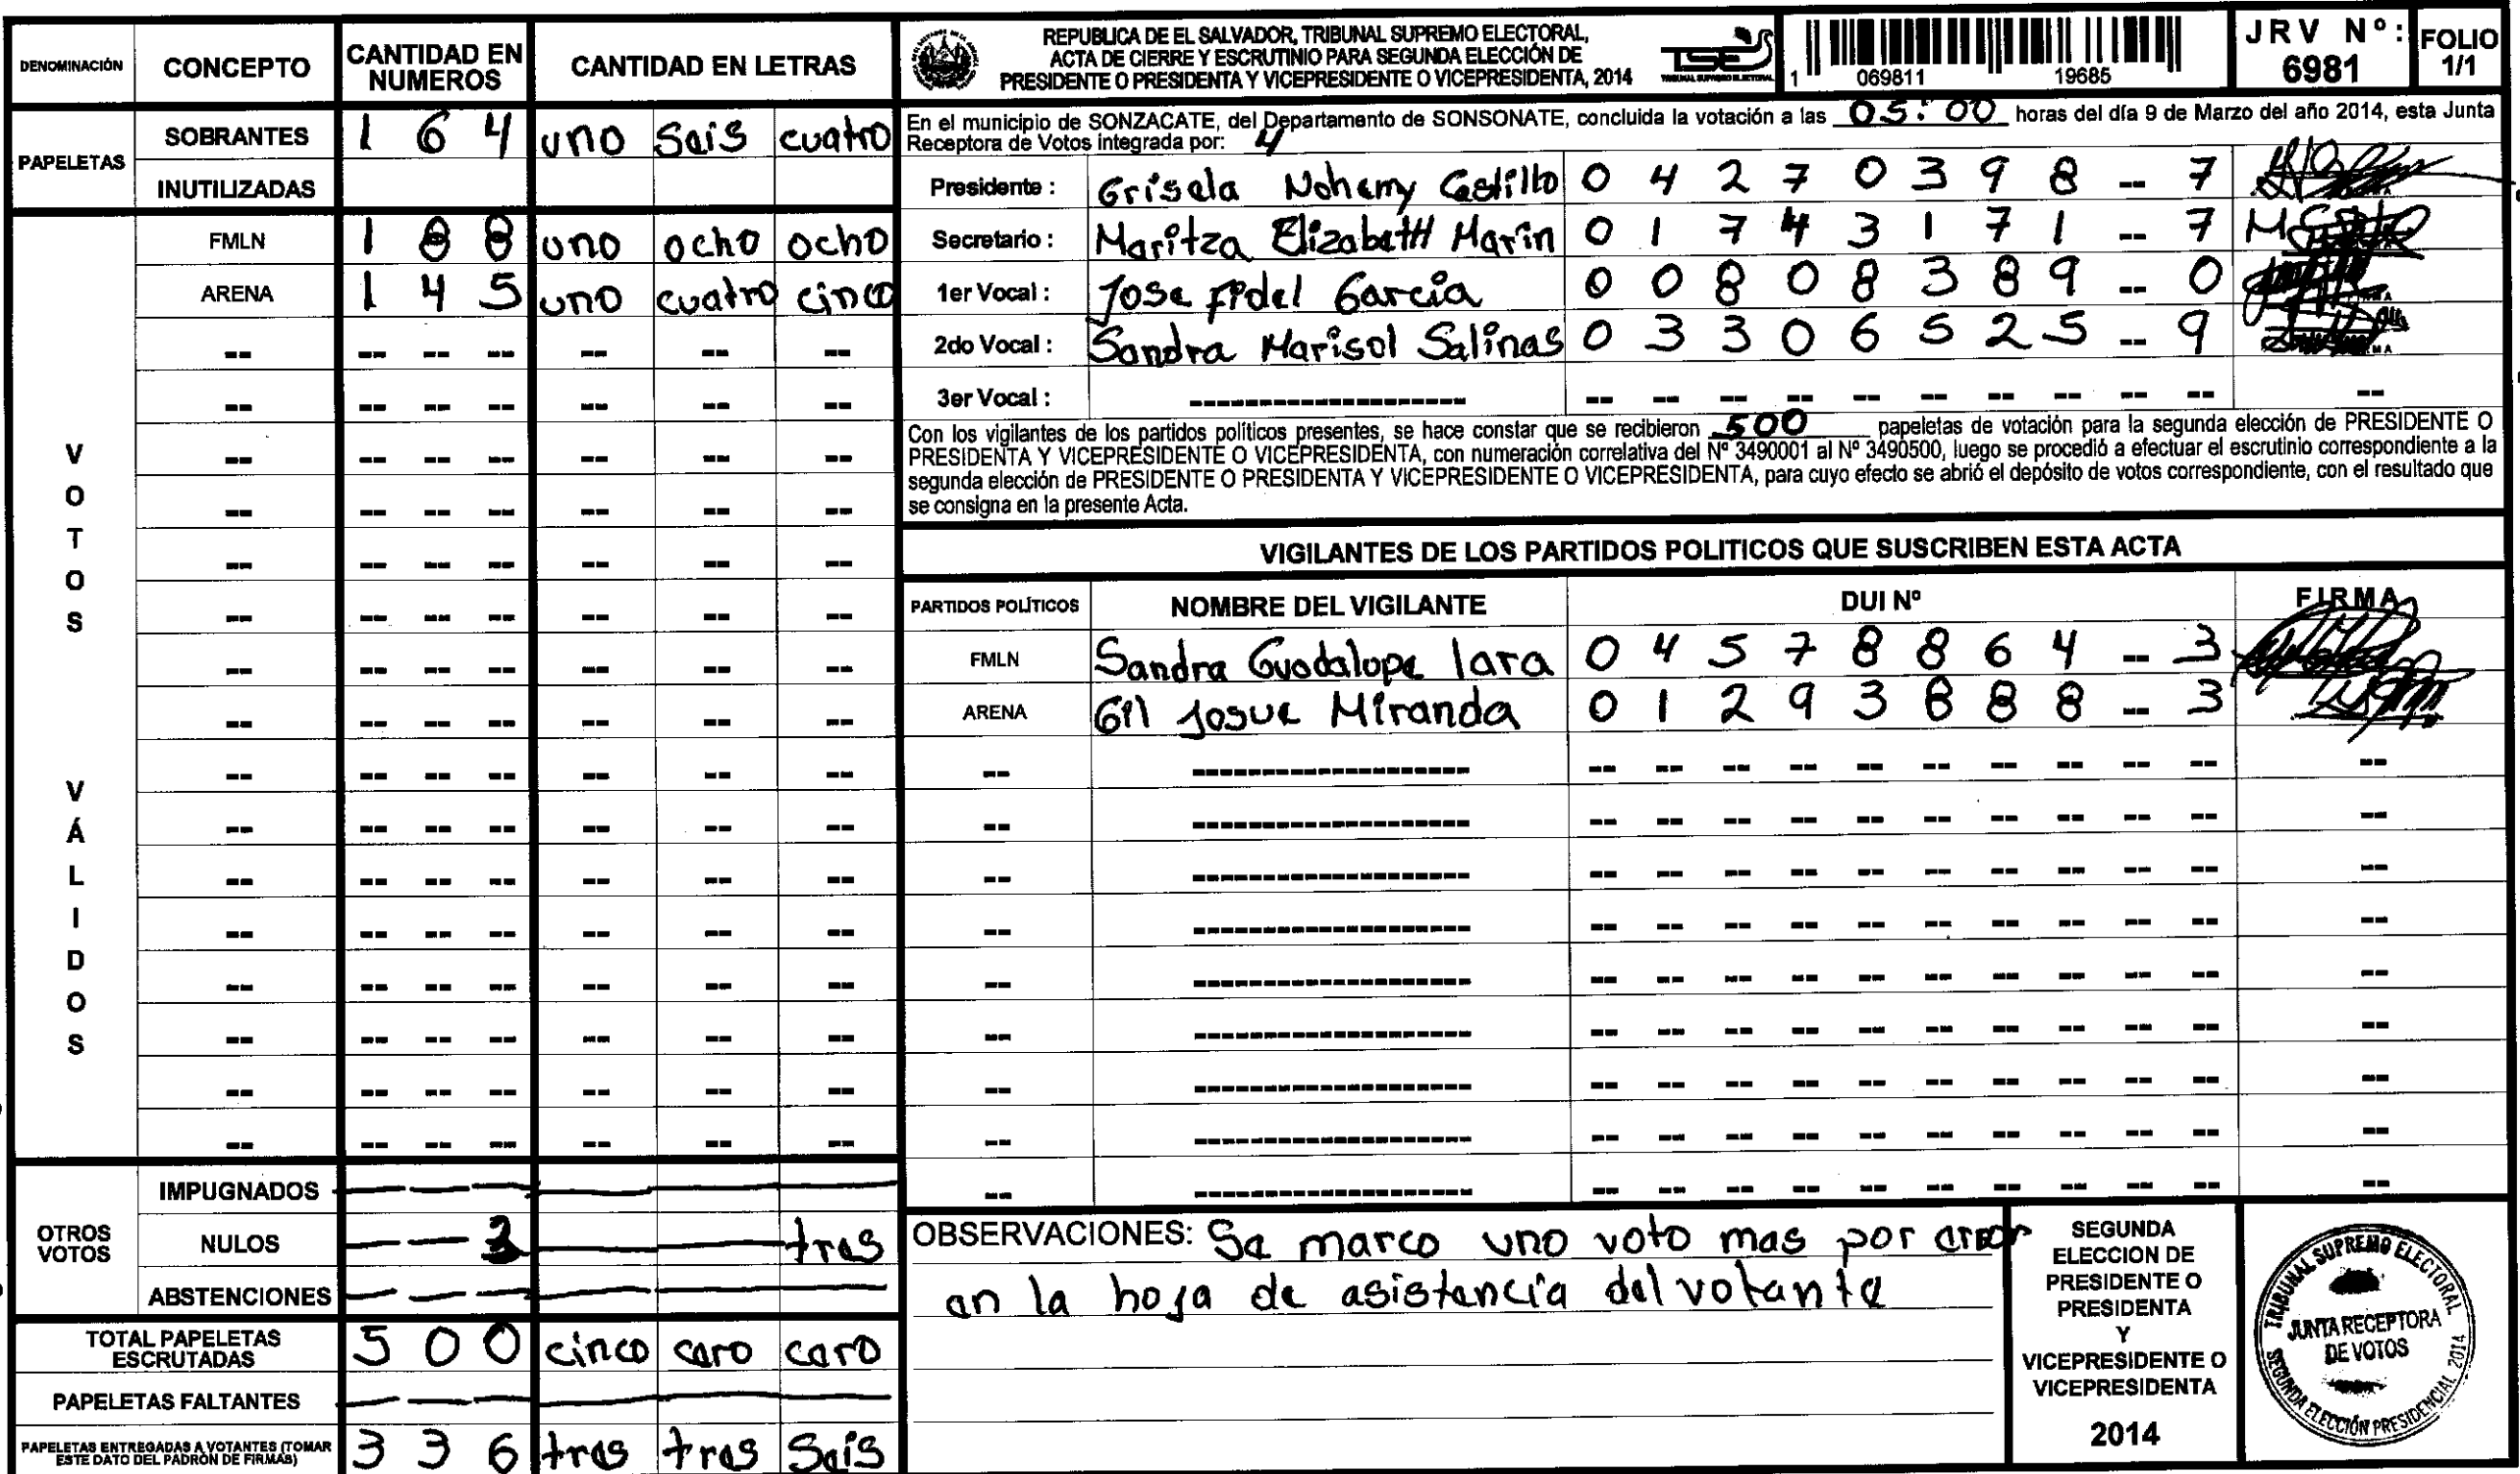 DENOMINACIÓN CONCEPTO CANTIDAD EN NUMEROS CANTIDAD EN LETRAS
PAPELETAS
SOBRANTES 1 6 4 uno sais cuatro
INUTILIZADAS
VOTOS VÁLIDOS
FMLN 1 8 8 uno ocho ocho
ARENA 1 4 5 uno cuatro cinco
OTROS VOTOS
IMPUGNADOS
NULOS 3 tras
ABSTENCIONES
TOTAL PAPELETAS ESCRUTADAS 5 0 0 cinco caro caro
PAPELETAS FALTANTES
PAPELETAS ENTREGADAS A VOTANTES (TOMAR ESTE DATO DEL PADRÓN DE FIRMAS) 3 3 6 tras tras sais
REPUBLICA DE EL SALVADOR, TRIBUNAL SUPREMO ELECTORAL,
ACTA DE CIERRE Y ESCRUTINIO PARA SEGUNDA ELECCIÓN DE
PRESIDENTE O PRESIDENTA Y VICEPRESIDENTE O VICEPRESIDENTA, 2014
TSE
TRIBUNAL SUPREMO ELECTORAL
1 069811 19685
JRV Nº: 6981
FOLIO 1/1
En el municipio de SONZACATE, del Departamento de SONSONATE, concluida la votación a las 05:00 horas del día 9 de Marzo del año 2014, esta Junta
Receptora de Votos integrada por: 4
Presidente : Grisela Nohemy Castillo 0 4 2 7 0 3 9 8 -- 7
Secretario : Maritza Elizabeth Marin 0 1 7 4 3 1 7 1 -- 7
1er Vocal : Jose Fidel Garcia 0 0 8 0 8 3 8 9 -- 0
2do Vocal : Sandra Marisol Salinas 0 3 3 0 6 5 2 5 -- 9
3er Vocal :
Con los vigilantes de los partidos políticos presentes, se hace constar que se recibieron 500 papeletas de votación para la segunda elección de PRESIDENTE O
PRESIDENTA Y VICEPRESIDENTE O VICEPRESIDENTA, con numeración correlativa del Nº 3490001 al Nº 3490500, luego se procedió a efectuar el escrutinio correspondiente a la
segunda elección de PRESIDENTE O PRESIDENTA Y VICEPRESIDENTE O VICEPRESIDENTA, para cuyo efecto se abrió el depósito de votos correspondiente, con el resultado que
se consigna en la presente Acta.
VIGILANTES DE LOS PARTIDOS POLITICOS QUE SUSCRIBEN ESTA ACTA
PARTIDOS POLÍTICOS NOMBRE DEL VIGILANTE DUI Nº FIRMA
FMLN Sandra Guadalupe lara 0 4 5 7 8 8 6 4 -- 3
ARENA Gil Josue Miranda 0 1 2 9 3 8 8 8 -- 3
OBSERVACIONES: Se marco uno voto mas por error
en la hoja de asistencia del votante
SEGUNDA
ELECCION DE
PRESIDENTE O
PRESIDENTA
Y
VICEPRESIDENTE O
VICEPRESIDENTA
2014
TRIBUNAL SUPREMO ELECTORAL
JUNTA RECEPTORA
DE VOTOS
SEGUNDA ELECCIÓN PRESIDENCIAL 2014